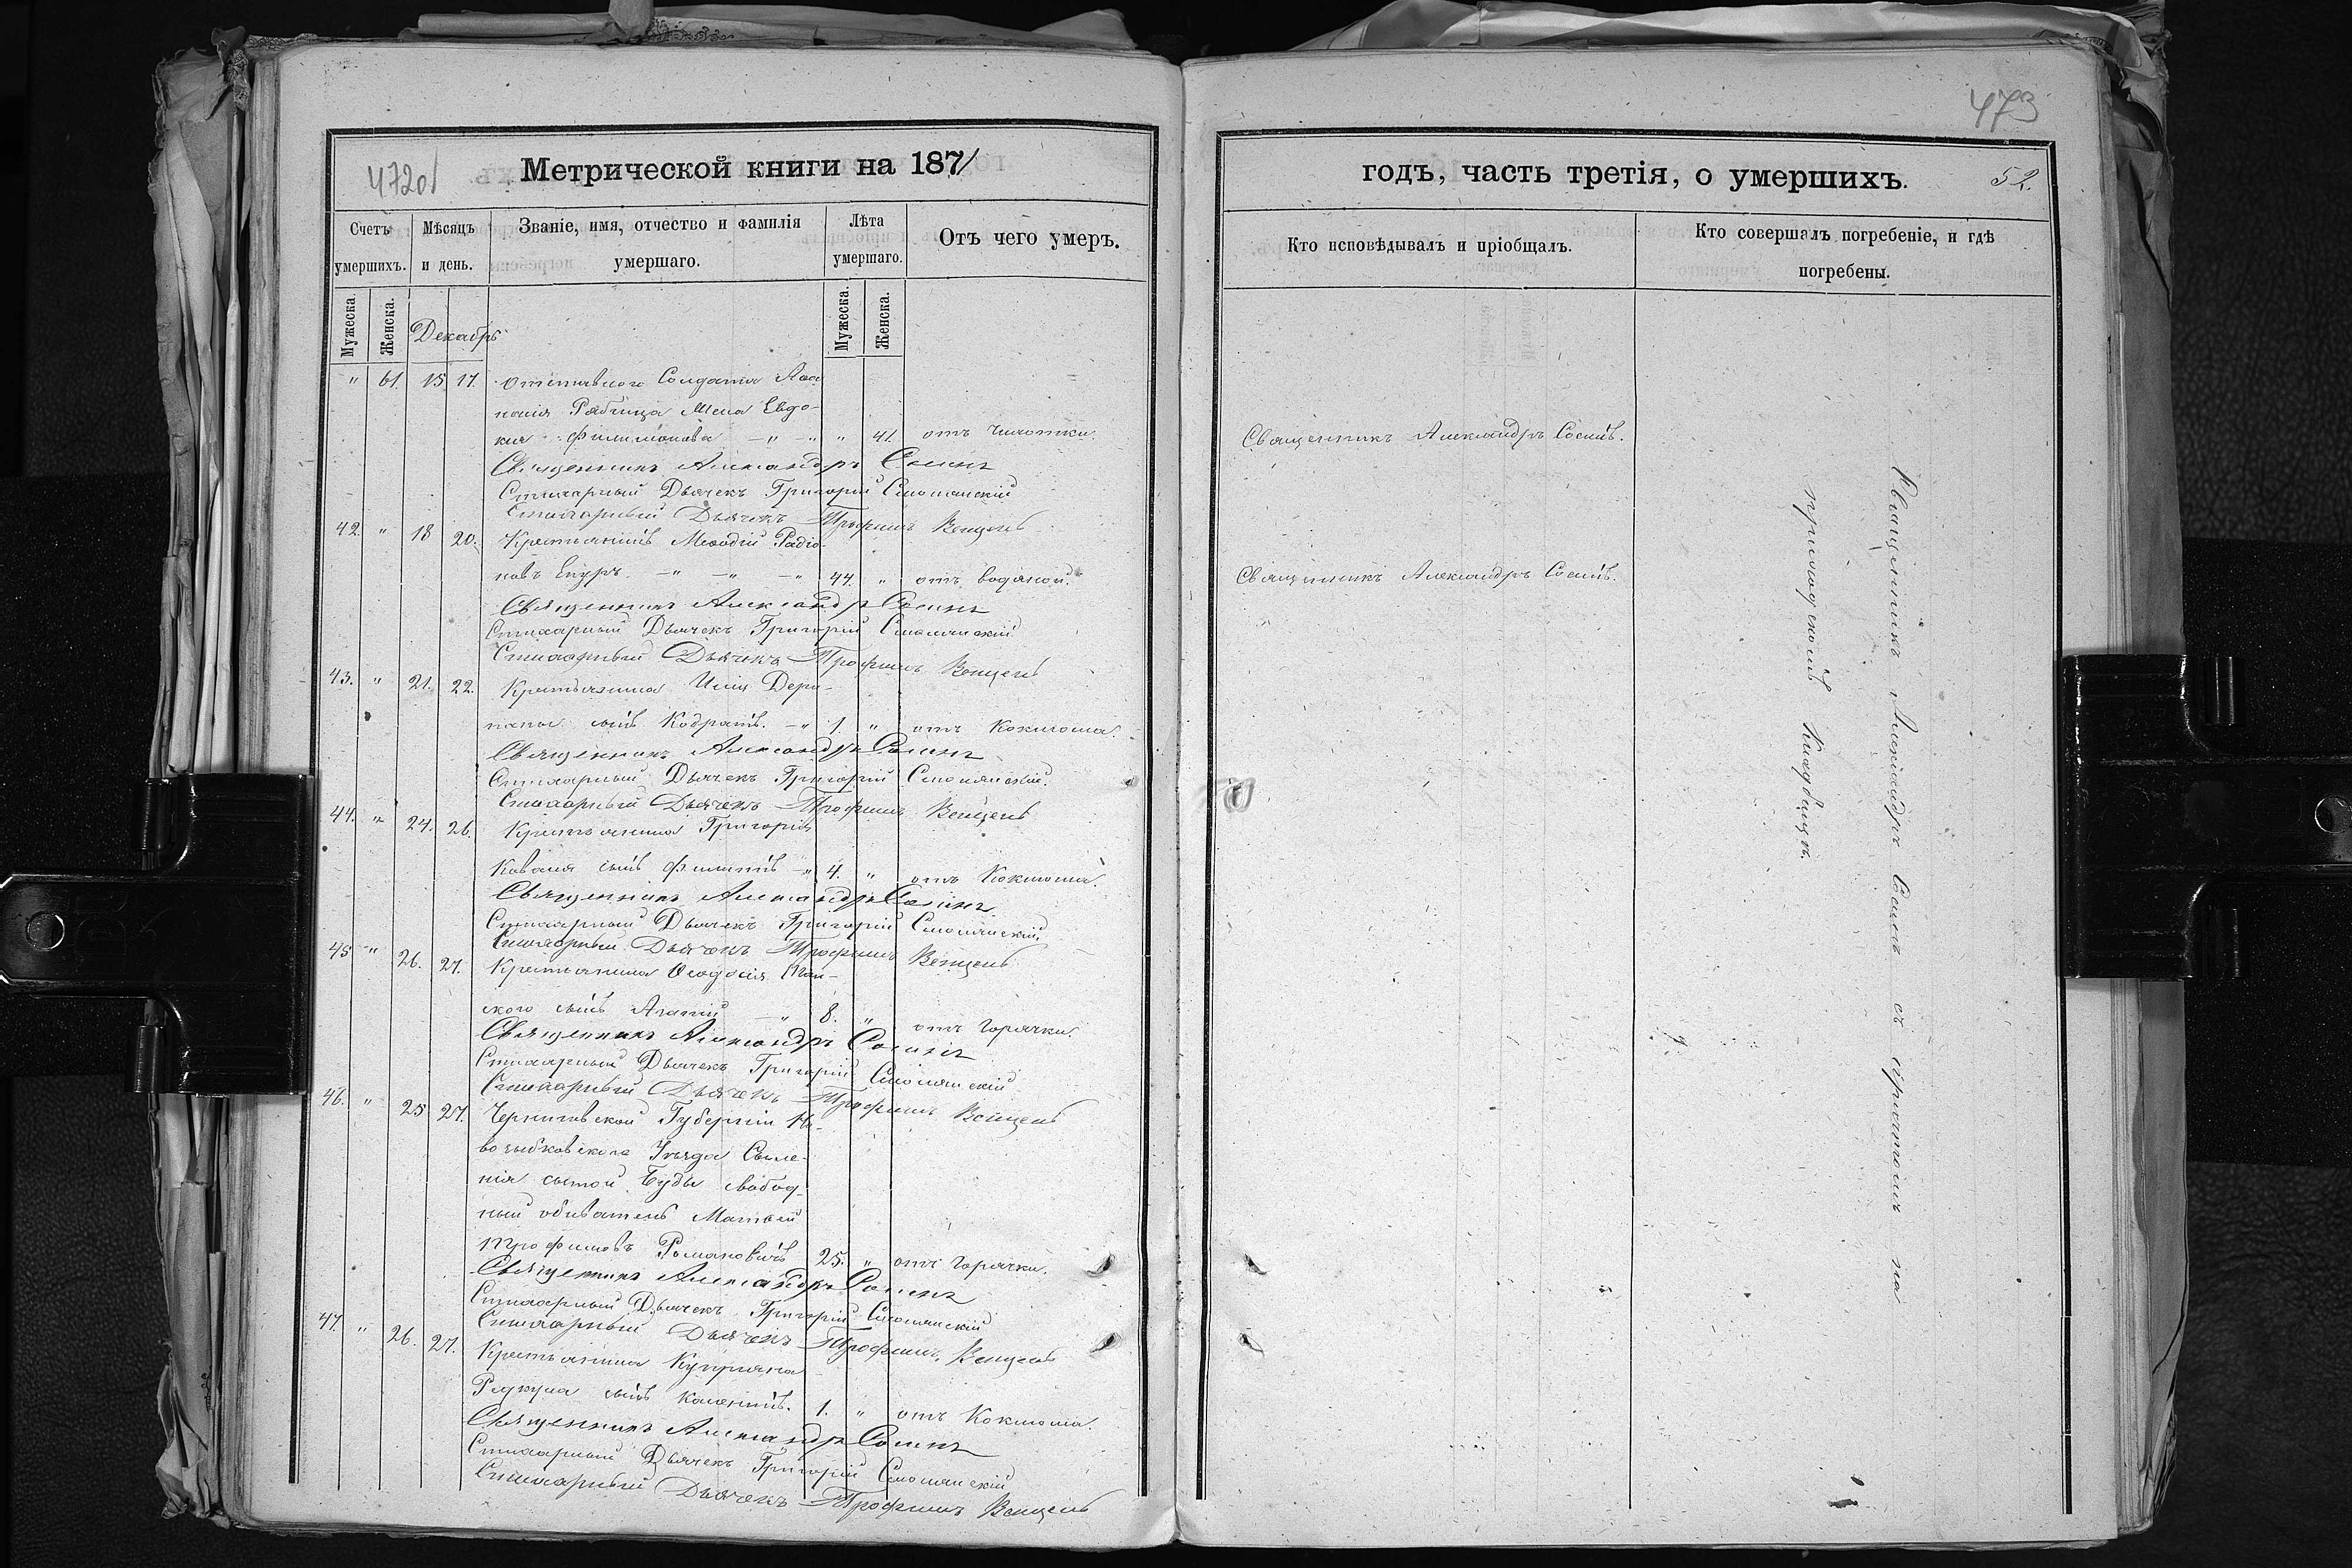 472об
Метрической книги на 1871
Счетъ умершихъ.
Мѣсяцъ и день.
Званіе, имя, отчество и фамилія умершаго.
Лѣта умершаго.
Отъ чего умеръ.
Мужеска.
Женска.
Декабрь
Мужеска.
Женска.
" 61. 15 17. отставного Солдата Аѳа-
насія жена Евдо-
кія Филимонова — " — " " 41. отъ чахотки.
Священникъ Александръ
Стихарный Дьячекъ Григорій Смолянскій
Стихарный Дьячекъ Трофимъ Венцель
42. " 18 20. Крестьянинъ Меѳодій Радіо-
новъ — " — " — " 44. " отъ водяной.
Священникъ Александръ
Стихарный Дьячекъ Григорій Смолянскій
Стихарный Дьячекъ Трофимъ Венцель
43. " 21. 22. Крестьянина Иліи
сынъ Кодратъ. — " 1. " отъ Коклюша.
Священникъ Александръ
Стихарный Дьячекъ Григорій Смолянскій.
Стихарный Дьячекъ Трофимъ Венцель
44. " 24. 26. Крестьянина Григорія
Коваля сынъ Филиппъ — " 4. " отъ Коклюша.
Священникъ Александръ
Стихарный Дьячекъ Григорій Смолянскій.
Стихарный Дьячекъ Трофимъ Венцель
45 " 26. 27. Крестьянина Ѳеодосія
сынъ — " 8. " отъ горячки.
Священникъ Александръ
Стихарный Дьячекъ Григорій Смолянскій
Стихарный Дьячекъ Трофимъ Венцель
46. " 25 27. Черниговской Губерніи Но-
возыбковскаго Уѣзда Селе-
нія Буды свобод-
ный обыватель Матвѣй
Трофимовъ Романовичъ 25. " отъ горячки.
Священникъ Александръ
Стихарный Дьячекъ Григорій Смолянскій
Стихарный Дьячекъ Трофимъ Венцель
47. " 26. 27. Крестьянина Купріяна
сынъ 1. " отъ Коклюша.
Священникъ Александръ
Стихарный Дьячекъ Григорій Смолянскій
Стихарный Дьячекъ Трофимъ Венцель
473
годъ, часть третія, о умершихъ.
52.
Кто исповѣдывалъ и пріобщалъ.
Кто совершалъ погребеніе, и гдѣ погребены.
Священникъ Александръ
Священникъ Александръ
Священникъ Александръ съ причтомъ на
приходскомъ Кладбищѣ.